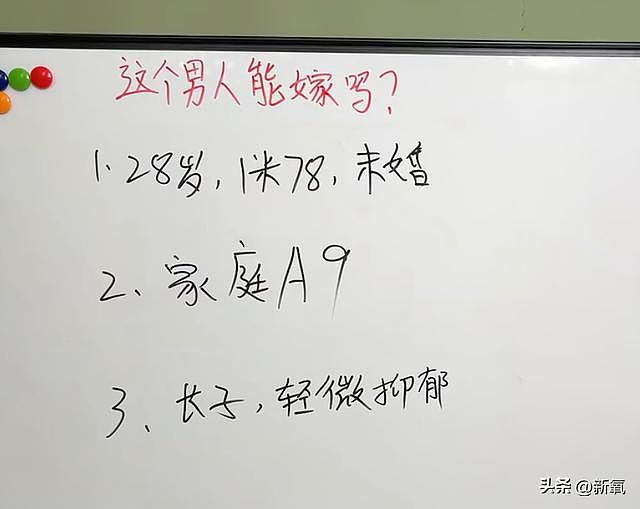 这个男人能嫁吗?
1、28岁,1米78,未婚
2、家庭A9
3、长子,轻微抑郁
头条 @新氧